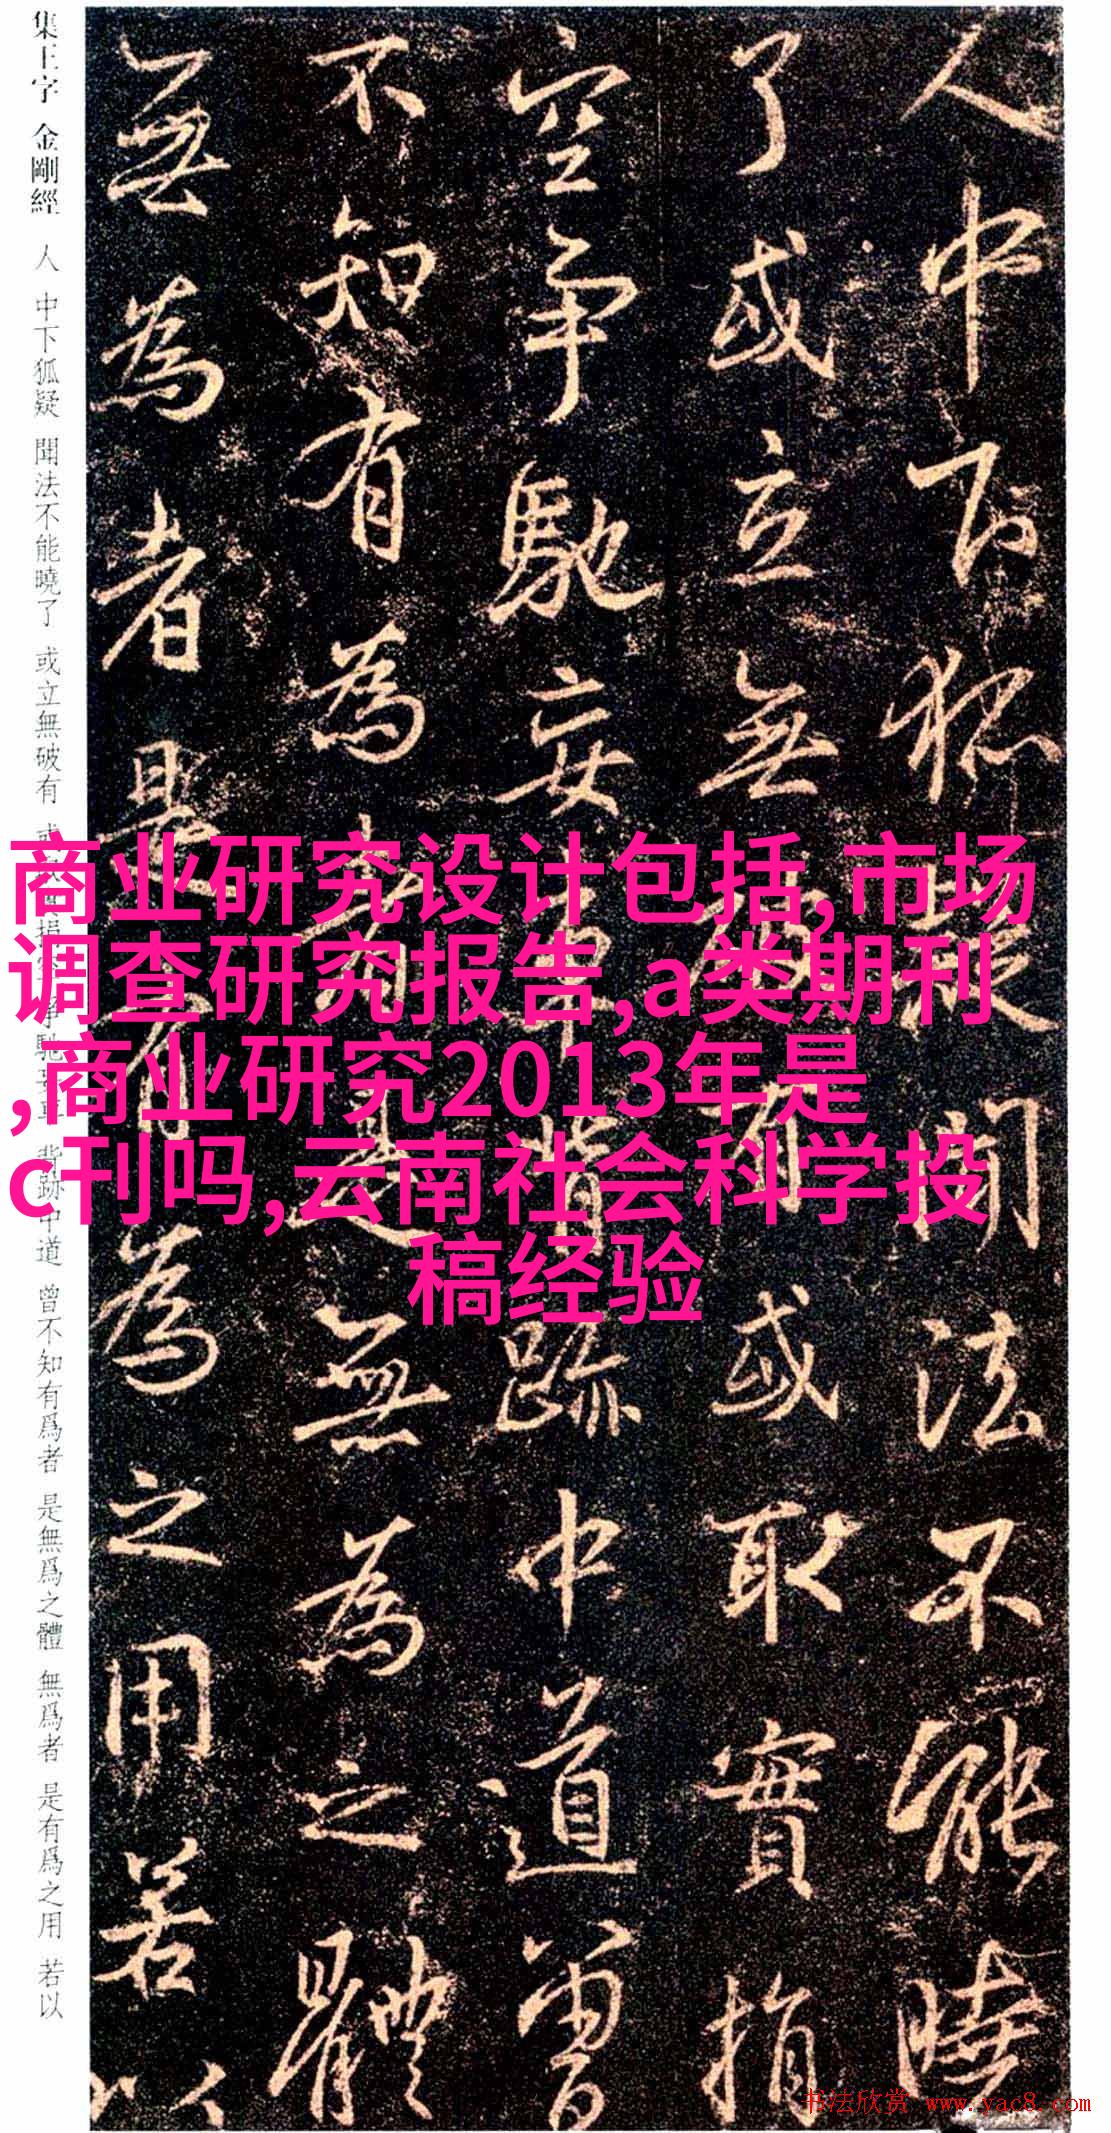 集王字 金剛經 人 中下狐疑 聞法不能曉了 或立無破有 或 捐 爭馳妄事 背跡中道 曾不知有爲者 是無爲之體 無爲者 是有爲之用 若以
人中下狐疑聞法不能曉
了或立無破有或取實捐
空爭馳妄事背跡中道曾
不知有為者是無為之體
無為者是有為之用若以
商业研究设计包括,市场
调查研究报告,a类期刊
,商业研究2013年是
c刊吗,云南社会科学投
稿经验
书法欣赏 www.yac8.com